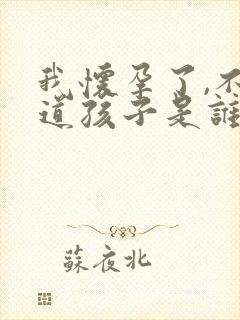 我懷孕了,不
道孩子是誰
蘇夜北